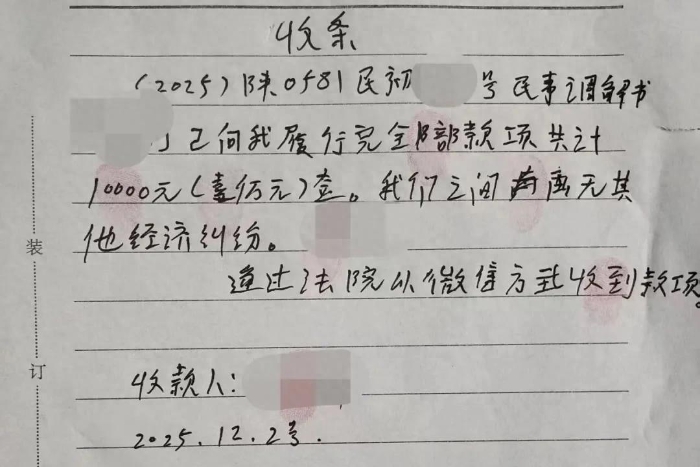 收条
(2025)陕0581民初 号民事调解书
已向我履行完全部款项共计
10000元(壹万元)整。我们之间再无其
他经济纠纷。
通过法院以微信方式收到款项。
收款人:
2025.12.2号.
装
订